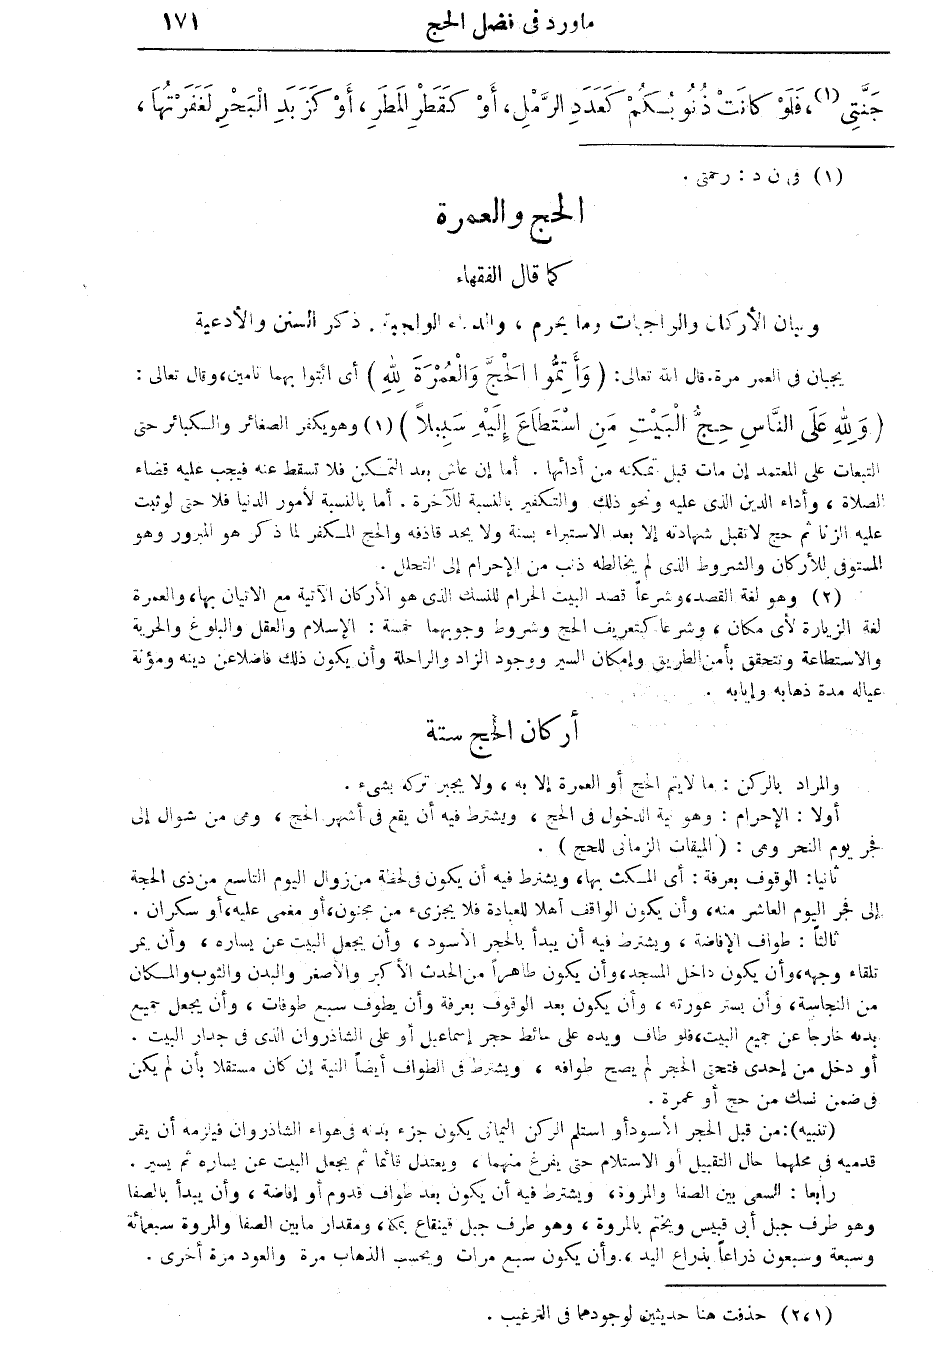 ماورد فى فضل الحج ١٧١
جَنَّتِي (١)، فَلَوْ كَانَتْ ذُنُوبُكُمْ كَعَدَدِ الرَّمْلِ، أَوْ كَقَطْرِ الْمَطَرِ، أَوْ كَزَبَدِ الْبَحْرِ لَغَفَرْتُهَا،
(١) فى ن د : رحمتى .
الحج والعمرة
كما قال الفقهاء
وبيان الأركان والواجبات وما يحرم ، والدماء الواجبة . ذكر السنن والأدعية
يجبان فى العمر مرة. قال الله تعالى: ( وَأَتِمُّوا الْحَجَّ وَالْعُمْرَةَ لِلهِ ) أى ائتوا بهما تامين، وقال تعالى :
( وَلِلهِ عَلَى النَّاسِ حِجُّ الْبَيْتِ مَنِ اسْتَطَاعَ إِلَيْهِ سَبِيلاً ) (١) وهو يكفر الصغائر والكبائر حتى
التبعات على المعتمد إن مات قبل تمكنه من أدائها . أما إن عاش بعد التمكن فلا تسقط عنه فيجب عليه قضاء
الصلاة ، وأداء الدين الذى عليه ونحو ذلك والتكفير بالنسبة للآخرة . أما بالنسبة لأمور الدنيا فلا حتى لو ثبت
عليه الزنا ثم حج لاتقبل شهادته إلا بعد الاستبراء بسنة ولا يحد قاذفه والحج المكفر لما ذكر هو المبرور وهو
المستوفى للأركان والشروط الذى لم يخالطه ذنب من الإحرام إلى التحلل .
(٢) وهو لغة القصد، وشرعاً قصد البيت الحرام للنسك الذى هو الأركان الآتية مع الاتيان بها، والعمرة
لغة الزيارة لأى مكان ، وشرعا كتعريف الحج وشروط وجوبهما خمسة : الإسلام والعقل والبلوغ والحرية
والاستطاعة وتتحقق بأمن الطريق وإمكان السير ووجود الزاد والراحلة وأن يكون ذلك فاضلا عن دينه ومؤنة
عياله مدة ذهابه وإيابه .
أركان الحج ستة
والمراد بالركن : ما لايتم الحج أو العمرة إلا به ، ولا يجبر تركه بشىء .
أولا : الإحرام : وهو نية الدخول فى الحج ، ويشترط فيه أن يقع فى أشهر الحج ، وهى من شوال إلى
فجر يوم النحر وهى : ( الميقات الزمانى للحج ) .
ثانيا: الوقوف بعرفة : أى المكث بها، ويشترط فيه أن يكون فى لحظة من زوال اليوم التاسع من ذى الحجة
إلى فجر اليوم العاشر منه، وأن يكون الواقف أهلا للعبادة فلا يجزىء من مجنون، أو مغمى عليه، أو سكران .
ثالثاً : طواف الإفاضة ، ويشترط فيه أن يبدأ بالحجر الأسود ، وأن يجعل البيت عن يساره ، وأن يمر
تلقاء وجهه، وأن يكون داخل المسجد، وأن يكون طاهراً من الحدث الأكبر والأصغر والبدن والثوب والمكان
من النجاسة، وأن يستر عورته ، وأن يكون بعد الوقوف بعرفة وأن يطوف سبع طوفات ، وأن يجعل جميع
بدنه خارجا عن جميع البيت، فلو طاف ويده على حائط حجر إسماعيل أو على الشاذروان الذى فى جدار البيت .
أو دخل من إحدى فتحتى الحجر لم يصح طوافه ، ويشترط فى الطواف أيضاً النية إن كان مستقلا بأن لم يكن
فى ضمن نسك من حج أو عمرة .
(تنبيه): من قبل الحجر الأسود أو استلم الركن اليمانى يكون جزء بدنه فى هواء الشاذروان فيلزمه أن يقر
قدميه فى محلهما حال التقبيل أو الاستلام حتى يفرغ منهما ، ويعتدل قائما ثم يجعل البيت عن يساره ثم يسير .
رابعا : السعى بين الصفا والمروة، ويشترط فيه أن يكون بعد طواف قدوم أو إفاضة ، وأن يبدأ بالصفا
وهو طرف جبل أبى قبيس ويختم بالمروة ، وهو طرف جبل قينقاع بمكة، ومقدار مابين الصفا والمروة سبعمائة
وسبعة وسبعون ذراعاً بذراع اليد ، وأن يكون سبع مرات ويحسب الذهاب مرة والعود مرة أخرى .
(١،٢) حذفت هنا حديثين لوجودهما فى الترغيب .